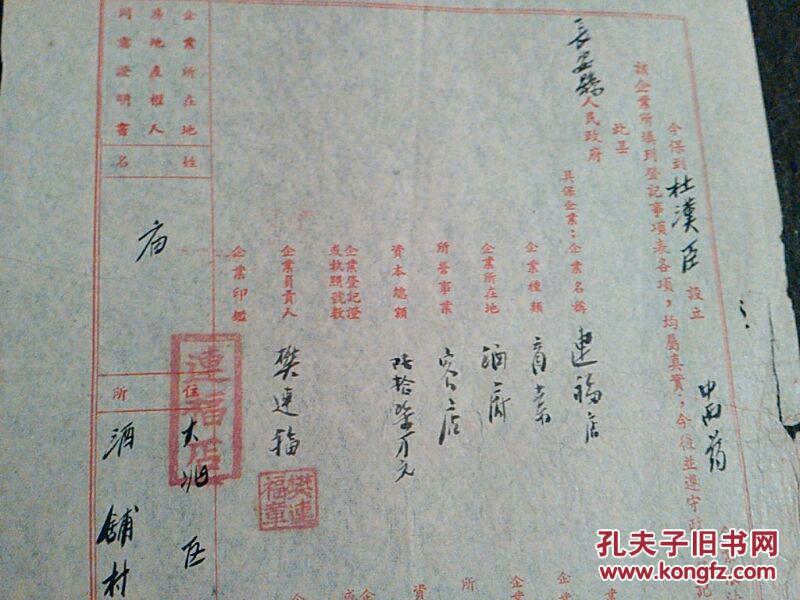 今保到 杜漢臣 設立 中西葯
該企業所填列登記事項表各項，均屬真實；今後並遵守政
此呈
長安縣人民政府
具保企業：企業名稱 連福店
企業種類 商業
企業所在地
所營事業 店
資本總額 陆拾柒万元
企業登記證或執照號數
企業負責人 樊連福
企業印鑑
連福店
樊連福章
企業所在地房地產權人同意證明書
姓名
住所 大兆区 酒舖村
企
成企
資
所
企業
企業
記
孔夫子旧书网
www.kongfz.com